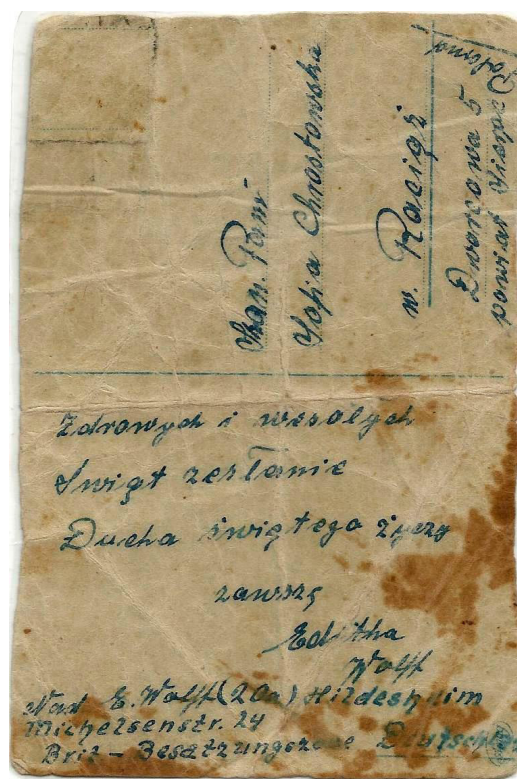 Szan. Pani
Zofia Chrostowska
w. Raciąż
Dworcowa 5
powiat Sierpc
Zdrowych i wesołych
Świąt zesłanie
Ducha świętego życzy
zawszę
Editha
Wolff
Nad E. Wolff (20a) Hildesheim
Michelsenstr. 24
Brit - Besatzungszone